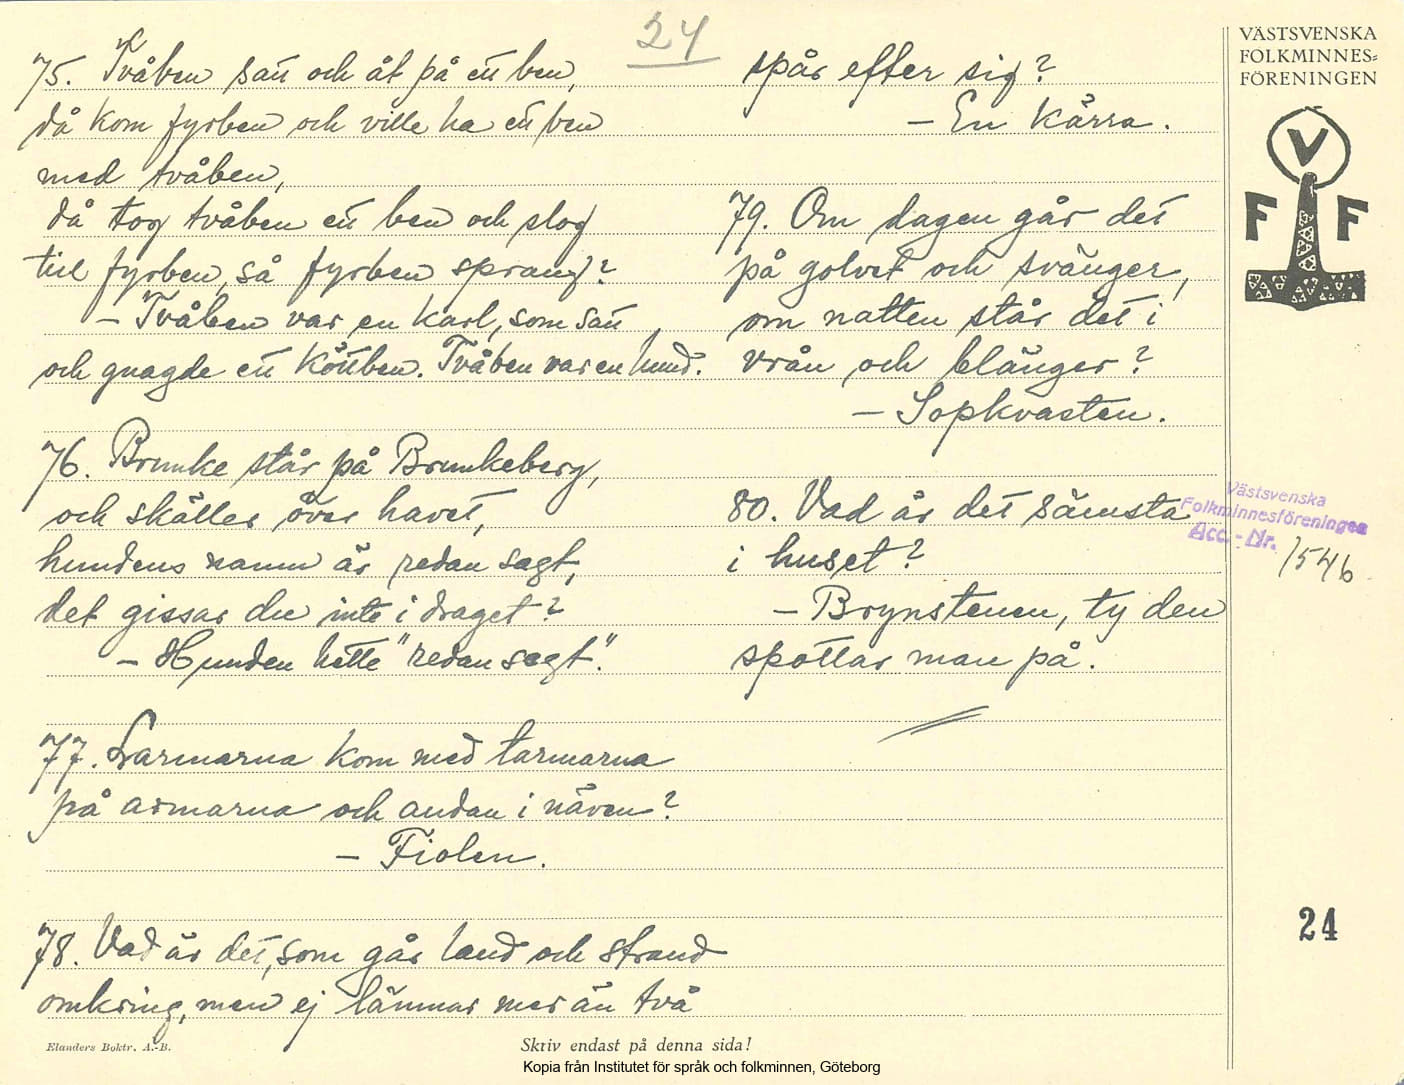 24
75. Tvåben satt och åt på ett ben,
då kom fyrben och ville ha ett ben
med tvåben,
då tog tvåben ett ben och slog
till fyrben, så fyrben sprang?
- Tvåben var en karl, som satt
och gnagde ett köttben. Tvåben var en hund.
76. Brunke står på Brunkeberg,
och skäller över havet,
hundens namn är redan sagt,
det gissar du inte i draget?
- Hunden hette "redan sagt".
77. Larmarna kom med tarmarna
på armarna och andan i näven?
- Fiolen.
78. Vad är det, som går land och strand
omkring, men ej lämnar mer än två
spår efter sig?
- En kärra.
79. Om dagen går det
på golvet och svänger,
om natten står det i
vrån och blänger?
- Sopkvasten.
80. Vad är det sämsta
i huset?
- Brynstenen, ty den
spottar man på.
VÄSTSVENSKA
FOLKMINNES=
FÖRENINGEN
V
F F
Västsvenska
Folkminnesföreningen
Acc.-Nr. 1546
24
Elanders Boktr. A.-B.
Skriv endast på denna sida!
Kopia från Institutet för språk och folkminnen, Göteborg